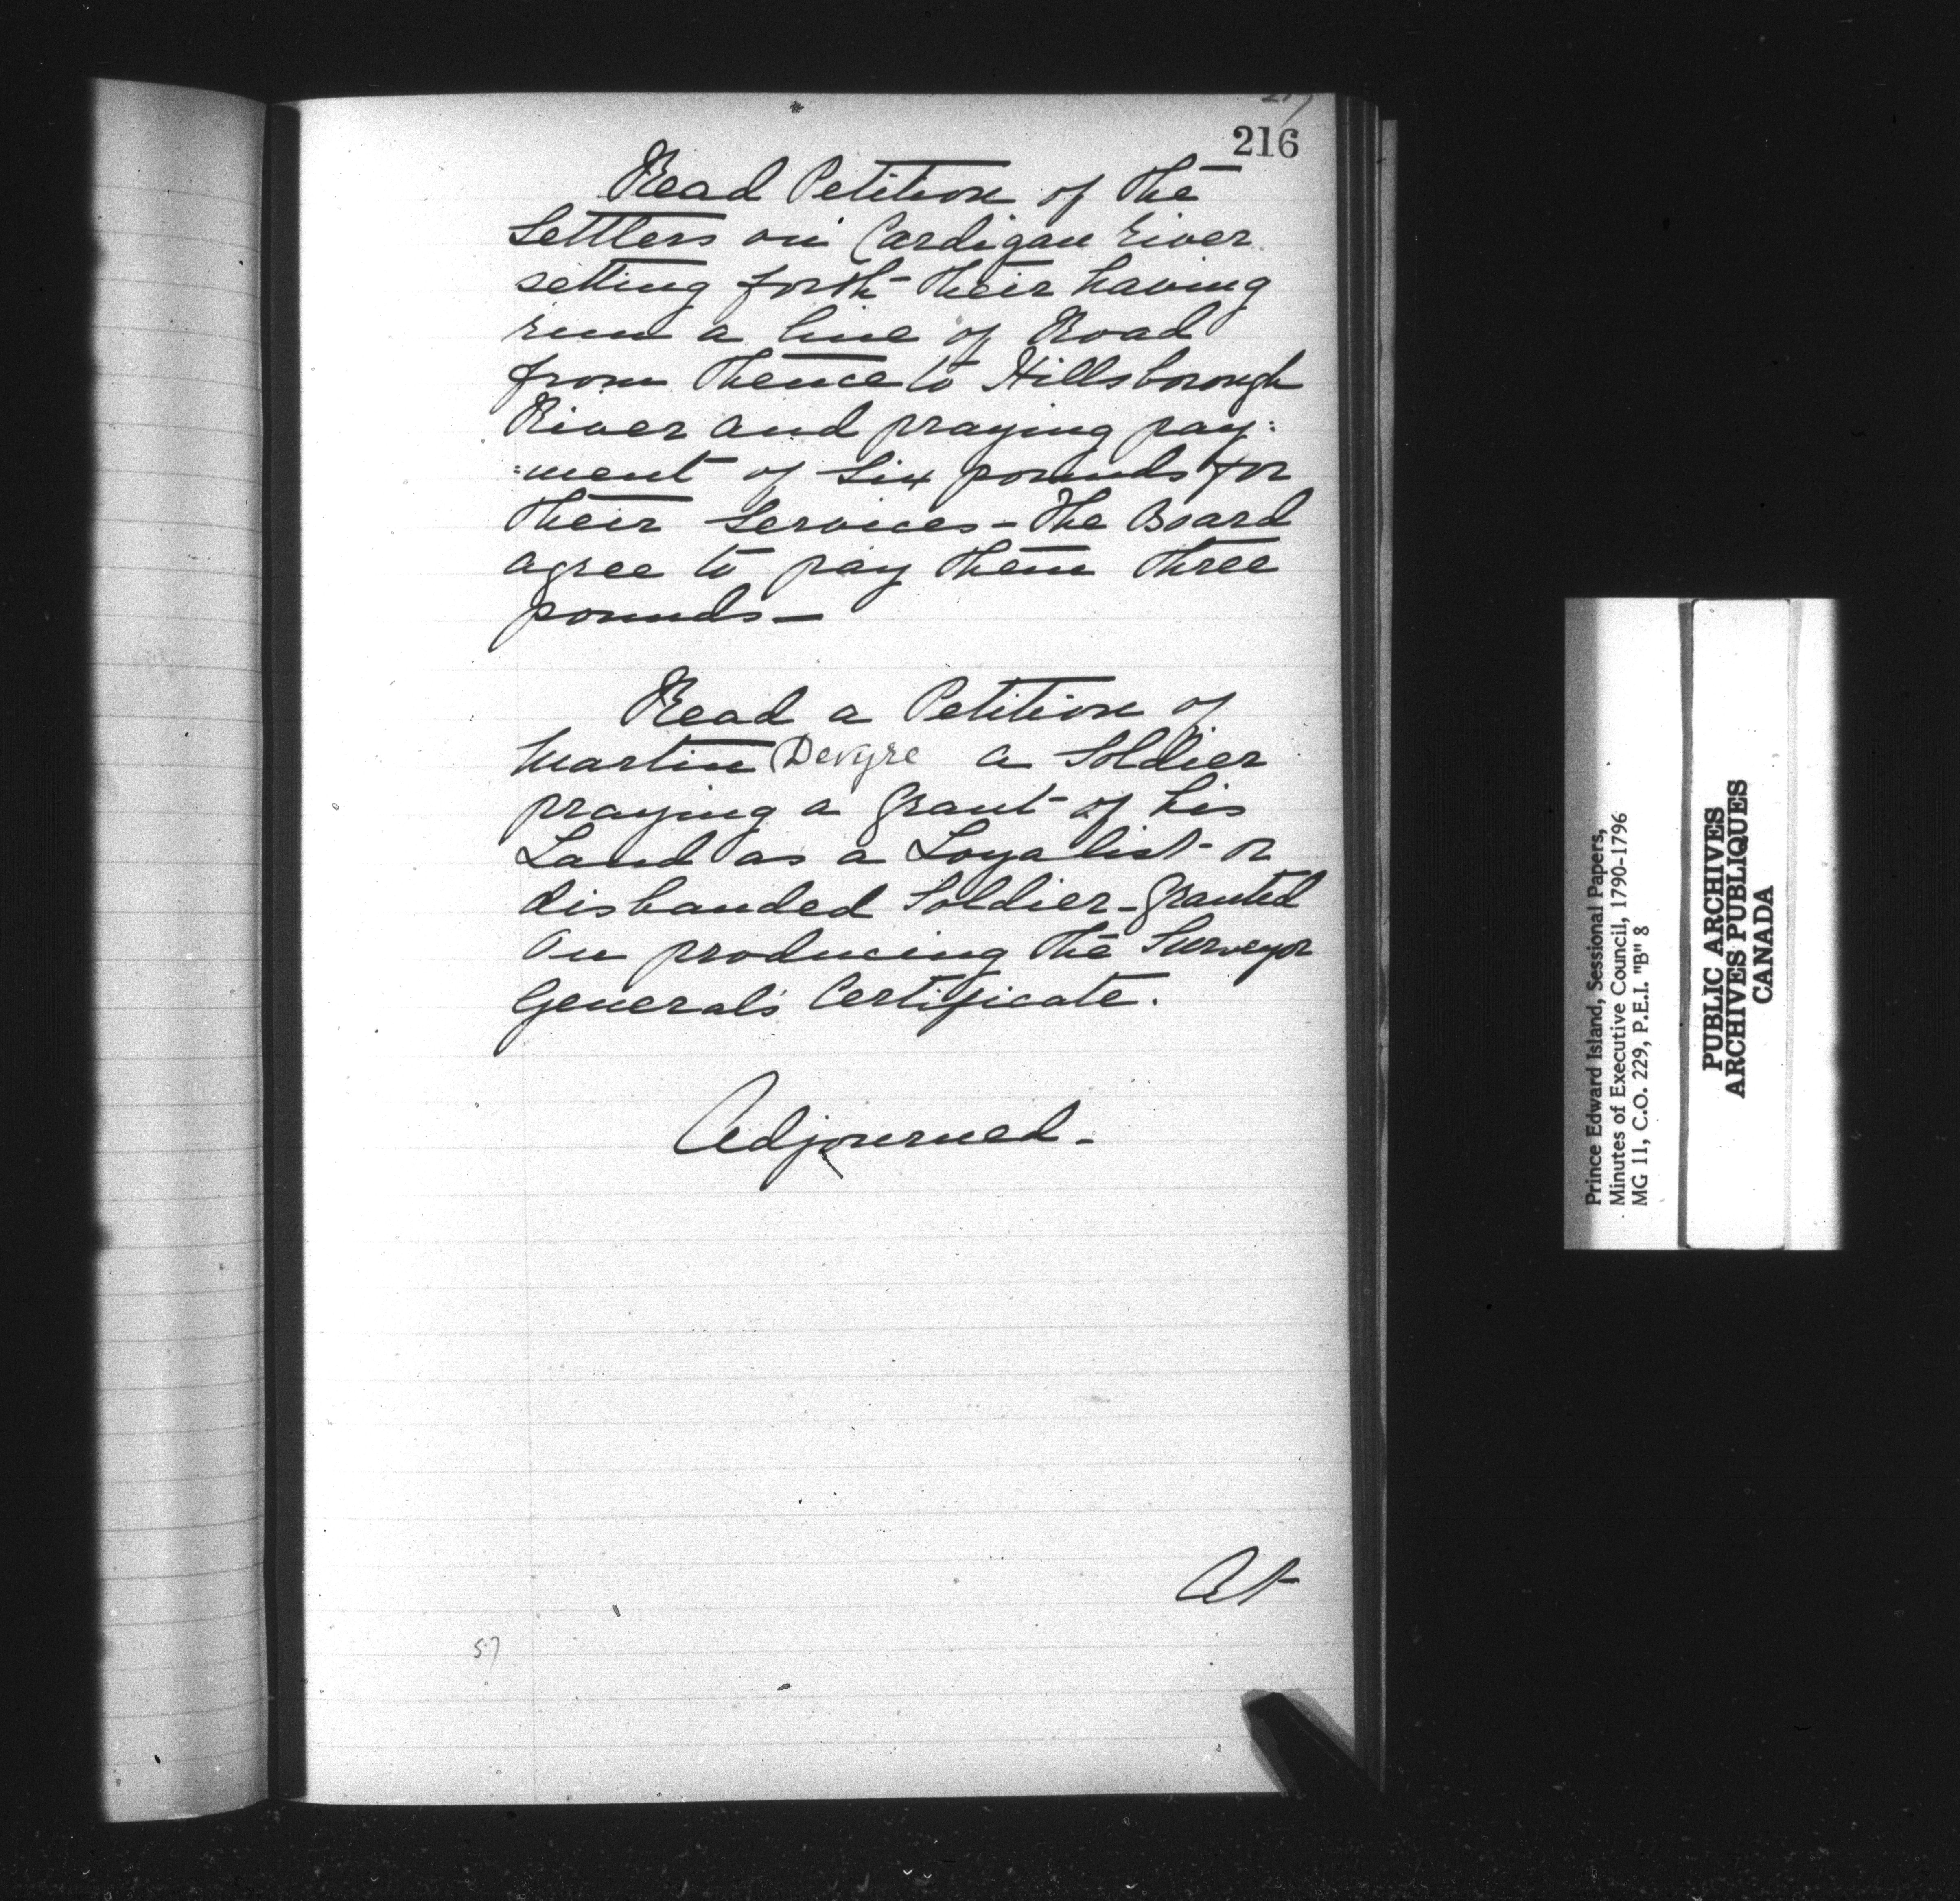 216
Read Petition of the
Settlers on Cardigan River
setting forth their having
run a line of Road
from thence to Hillsborough
River and praying pay:
:ment of Six pounds for
their Services - The Board
agree to pay them three
pounds -
Read a Petition of
Martin Devyre a Soldier
praying a grant of his
Land as a Loyalist or
disbanded Soldier - granted
on producing the Surveyor
General's Certificate.
Adjourned -
At
57
Prince Edward Island, Sessional Papers,
Minutes of Executive Council, 1790-1796
MG 11, C.O. 229, P.E.I. "B" 8
PUBLIC ARCHIVES
ARCHIVES PUBLIQUES
CANADA